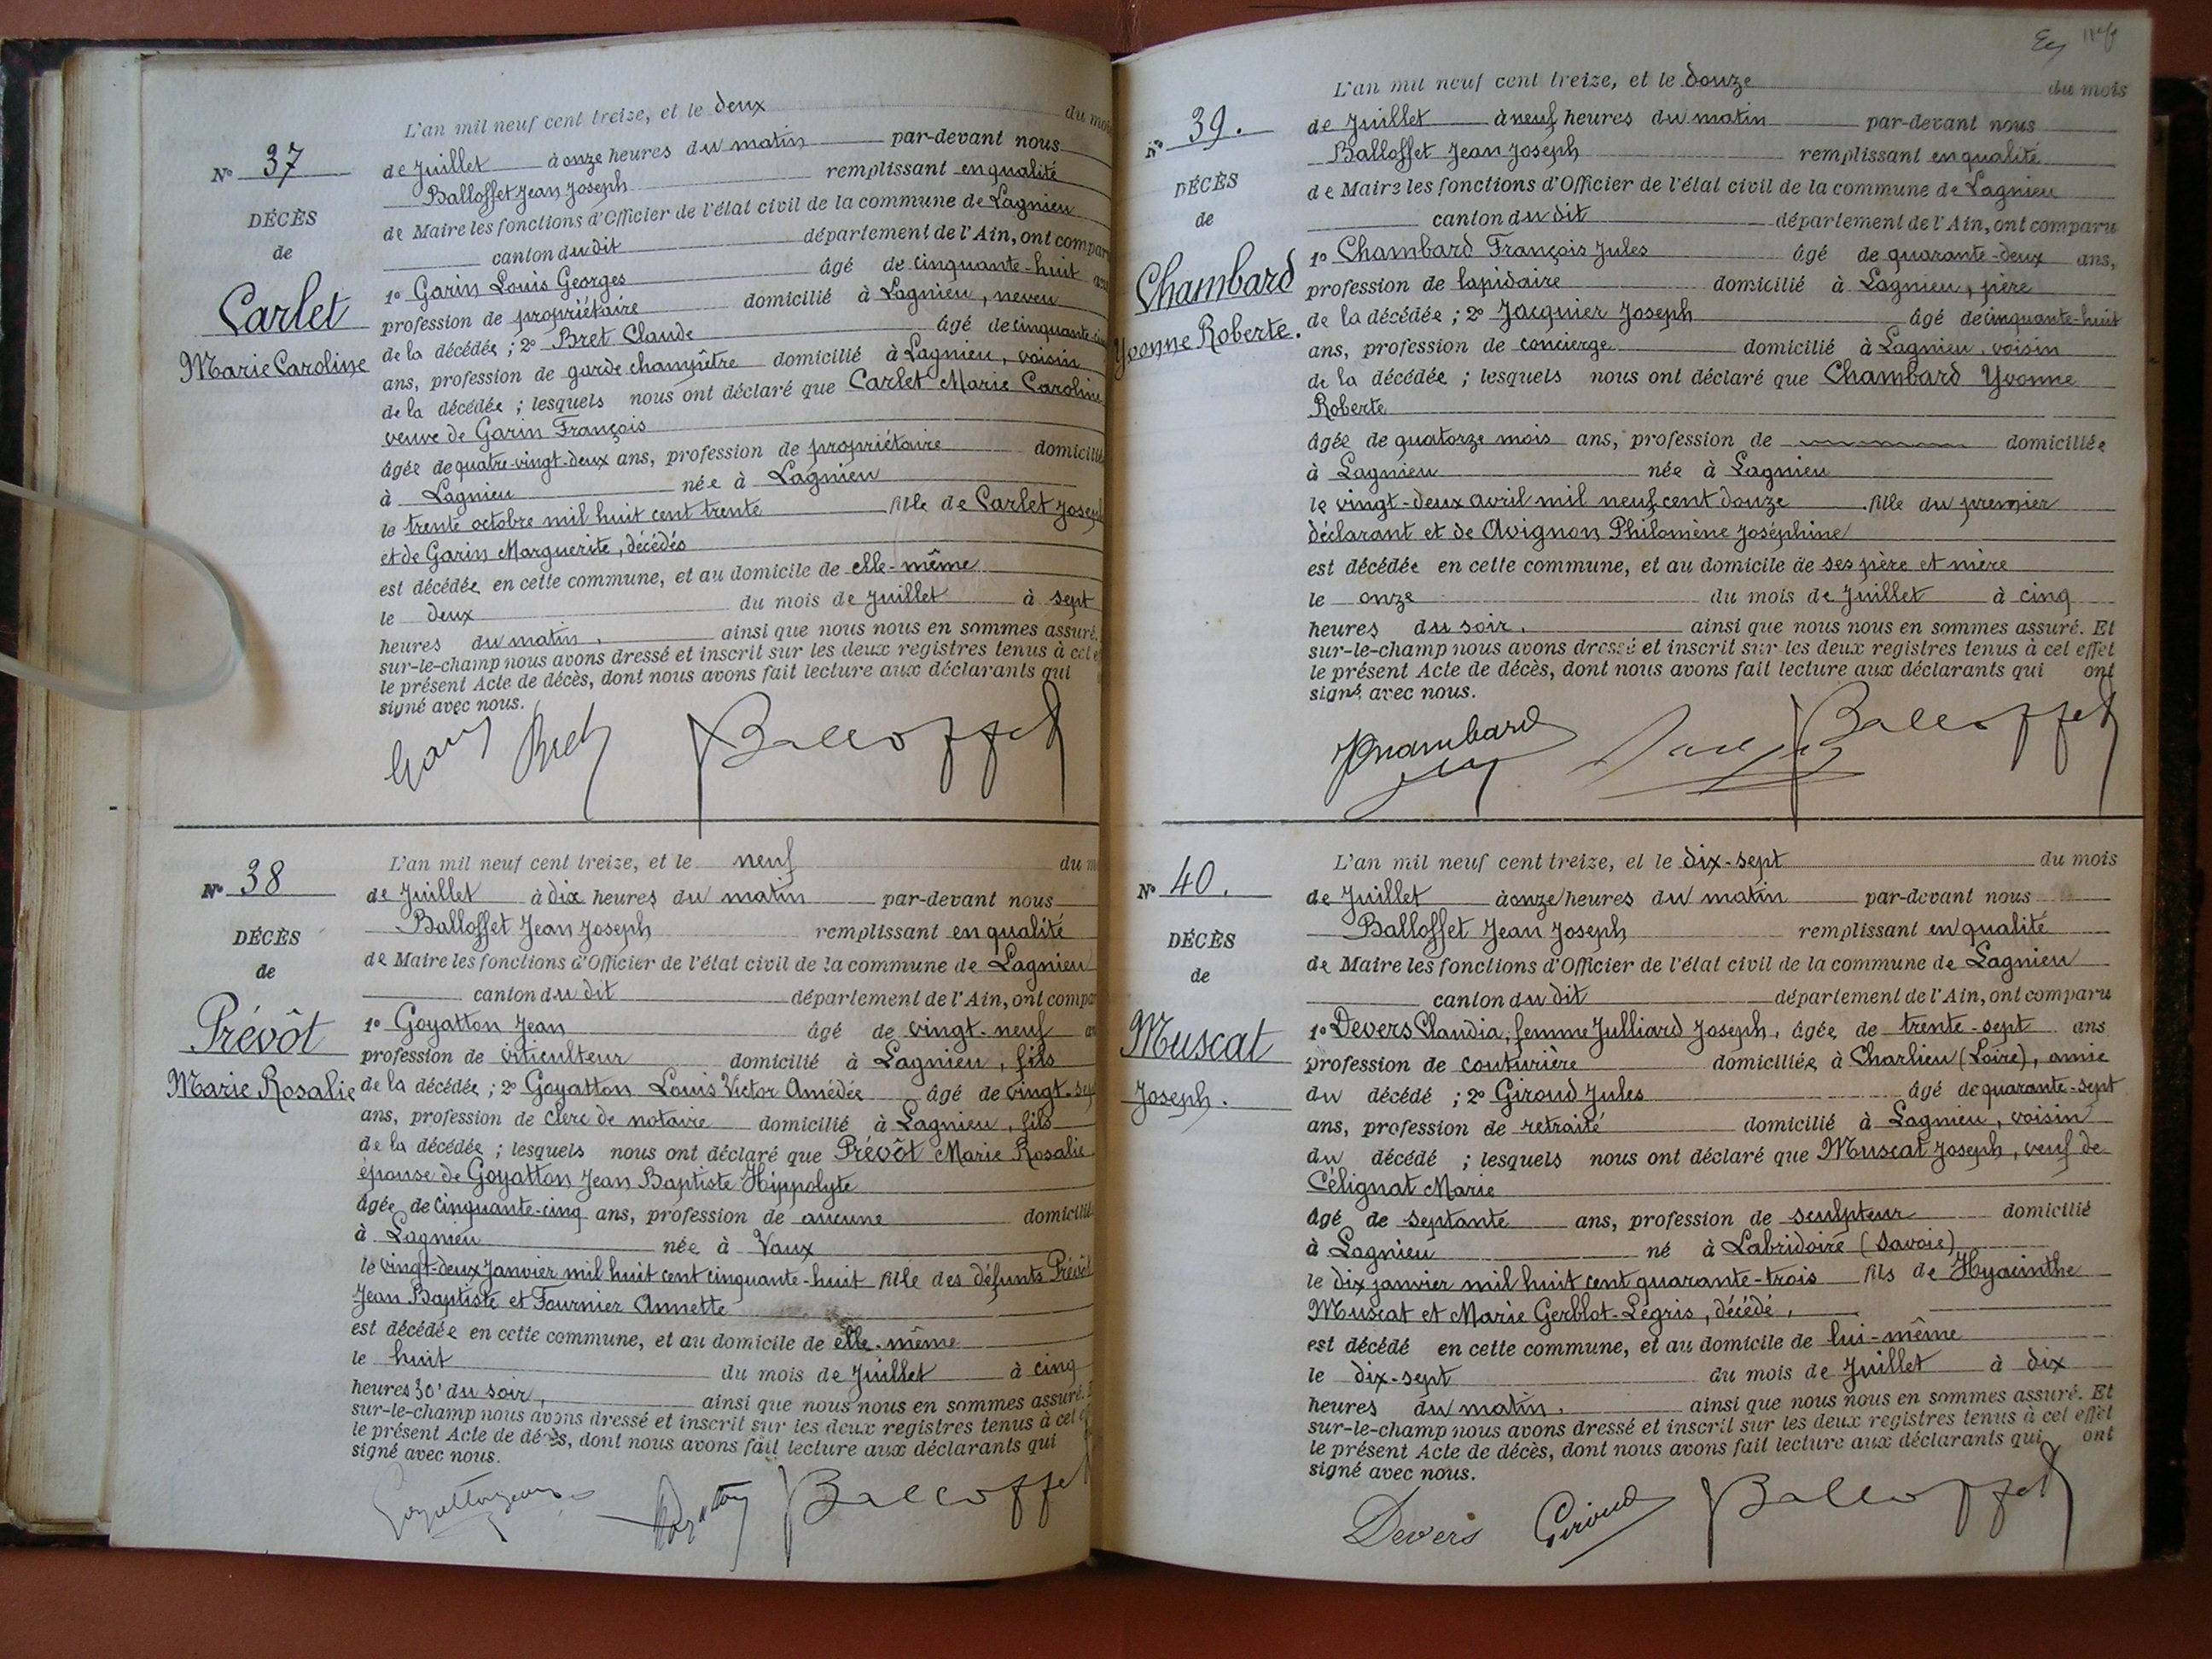 L'an mil neuf cent treize, et le deux du mois
N° 37
de Juillet à onze heures du matin par-devant nous
Balloffet Jean Joseph remplissant en qualité
DÉCÈS
de Maire les fonctions d'Officier de l'état civil de la commune de Lagnieu
de
canton du dit département de l'Ain, ont compar
1° Garin Louis Georges âgé de cinquante-huit ans
Carlet
profession de propriétaire domicilié à Lagnieu, neveu
Marie Caroline
de la décédée ; 2° Bret Claude âgé de cinquante
ans, profession de garde champêtre domicilié à Lagnieu, voisin
de la décédée ; lesquels nous ont déclaré que Carlet Marie Caroline
veuve de Garin François
âgée de quatre-vingt-deux ans, profession de propriétaire domicilié
à Lagnieu née à Lagnieu
le trente octobre mil huit cent trente fille de Carlet Joseph
et de Garin Marguerite, décédés
est décédée en cette commune, et au domicile de elle-même
le deux du mois de Juillet à sept
heures du matin. ainsi que nous nous en sommes assuré.
sur-le-champ nous avons dressé et inscrit sur les deux registres tenus à cet e
le présent Acte de décès, dont nous avons fait lecture aux déclarants qui
signé avec nous.
Garin Bret Balloffet
L'an mil neuf cent treize, et le neuf du m
N° 38
de Juillet à dix heures du matin par-devant nous
Balloffet Jean Joseph remplissant en qualité
DÉCÈS
de Maire les fonctions d'Officier de l'état civil de la commune de Lagnieu
de
canton du dit département de l'Ain, ont compa
Prévôt
1° Goyatton Jean âgé de vingt-neuf an
profession de viticulteur domicilié à Lagnieu, fils
Marie Rosalie
de la décédée ; 2° Goyatton Louis Victor Amédée âgé de vingt-sep
ans, profession de Clerc de notaire domicilié à Lagnieu, fils
de la décédée ; lesquels nous ont déclaré que Prévôt Marie Rosalie
épouse de Goyatton Jean Baptiste Hippolyte
âgée de cinquante-cinq ans, profession de aucune domicilié
à Lagnieu née à Vaux
le vingt-deux Janvier mil huit cent cinquante-huit fille des défunts Prévôt
Jean Baptiste et Fournier Annette
est décédée en cette commune, et au domicile de elle-même
le huit du mois de Juillet à cinq
heures 30' du soir, ainsi que nous nous en sommes assuré.
sur-le-champ nous avons dressé et inscrit sur les deux registres tenus à cet
le présent Acte de décès, dont nous avons fait lecture aux déclarants qui
signé avec nous.
Goyatton Jean Goyatton Balloffet
L'an mil neuf cent treize, et le douze du mois
N° 39.
de Juillet à neuf heures du matin par-devant nous
Balloffet Jean Joseph remplissant en qualité
DÉCÈS
de Maire les fonctions d'Officier de l'état civil de la commune de Lagnieu
de
canton du dit département de l'Ain, ont comparu
1° Chambard François Jules âgé de quarante-deux ans,
Chambard
profession de lapidaire domicilié à Lagnieu, père
Yvonne Roberte.
de la décédée ; 2° Jacquier Joseph âgé de cinquante-huit
ans, profession de concierge domicilié à Lagnieu, voisin
de la décédée ; lesquels nous ont déclaré que Chambard Yvonne
Roberte
âgée de quatorze mois ans, profession de domiciliée
à Lagnieu née à Lagnieu
le vingt-deux avril mil neuf cent douze fille du premier
déclarant et de Avignon Philomène Joséphine
est décédée en cette commune, et au domicile de ses père et mère
le onze du mois de Juillet à cinq
heures du soir, ainsi que nous nous en sommes assuré. Et
sur-le-champ nous avons dressé et inscrit sur les deux registres tenus à cet effet
le présent Acte de décès, dont nous avons fait lecture aux déclarants qui ont
signé avec nous.
Chambard Jacquier Balloffet
L'an mil neuf cent treize, et le dix-sept du mois
N° 40.
de Juillet à onze heures du matin par-devant nous
Balloffet Jean Joseph remplissant en qualité
DÉCÈS
de Maire les fonctions d'Officier de l'état civil de la commune de Lagnieu
de
canton du dit département de l'Ain, ont comparu
Muscat
1° Devers Claudia, femme Julliard Joseph, âgée de trente-sept ans
profession de couturière domiciliée à Charlieu (Loire), amie
Joseph.
du décédé ; 2° Giroud Jules âgé de quarante-sept
ans, profession de retraité domicilié à Lagnieu, voisin
du décédé ; lesquels nous ont déclaré que Muscat Joseph, veuf de
Célignat Marie
âgé de septante ans, profession de sculpteur domicilié
à Lagnieu né à Labridoire (Savoie)
le dix janvier mil huit cent quarante-trois fils de Hyacinthe
Muscat et Marie Gerblot-Légris, décédé,
est décédé en cette commune, et au domicile de lui-même
le dix-sept du mois de Juillet à dix
heures du matin. ainsi que nous nous en sommes assuré. Et
sur-le-champ nous avons dressé et inscrit sur les deux registres tenus à cet effet
le présent Acte de décès, dont nous avons fait lecture aux déclarants qui ont
signé avec nous.
Devers Giroud Balloffet